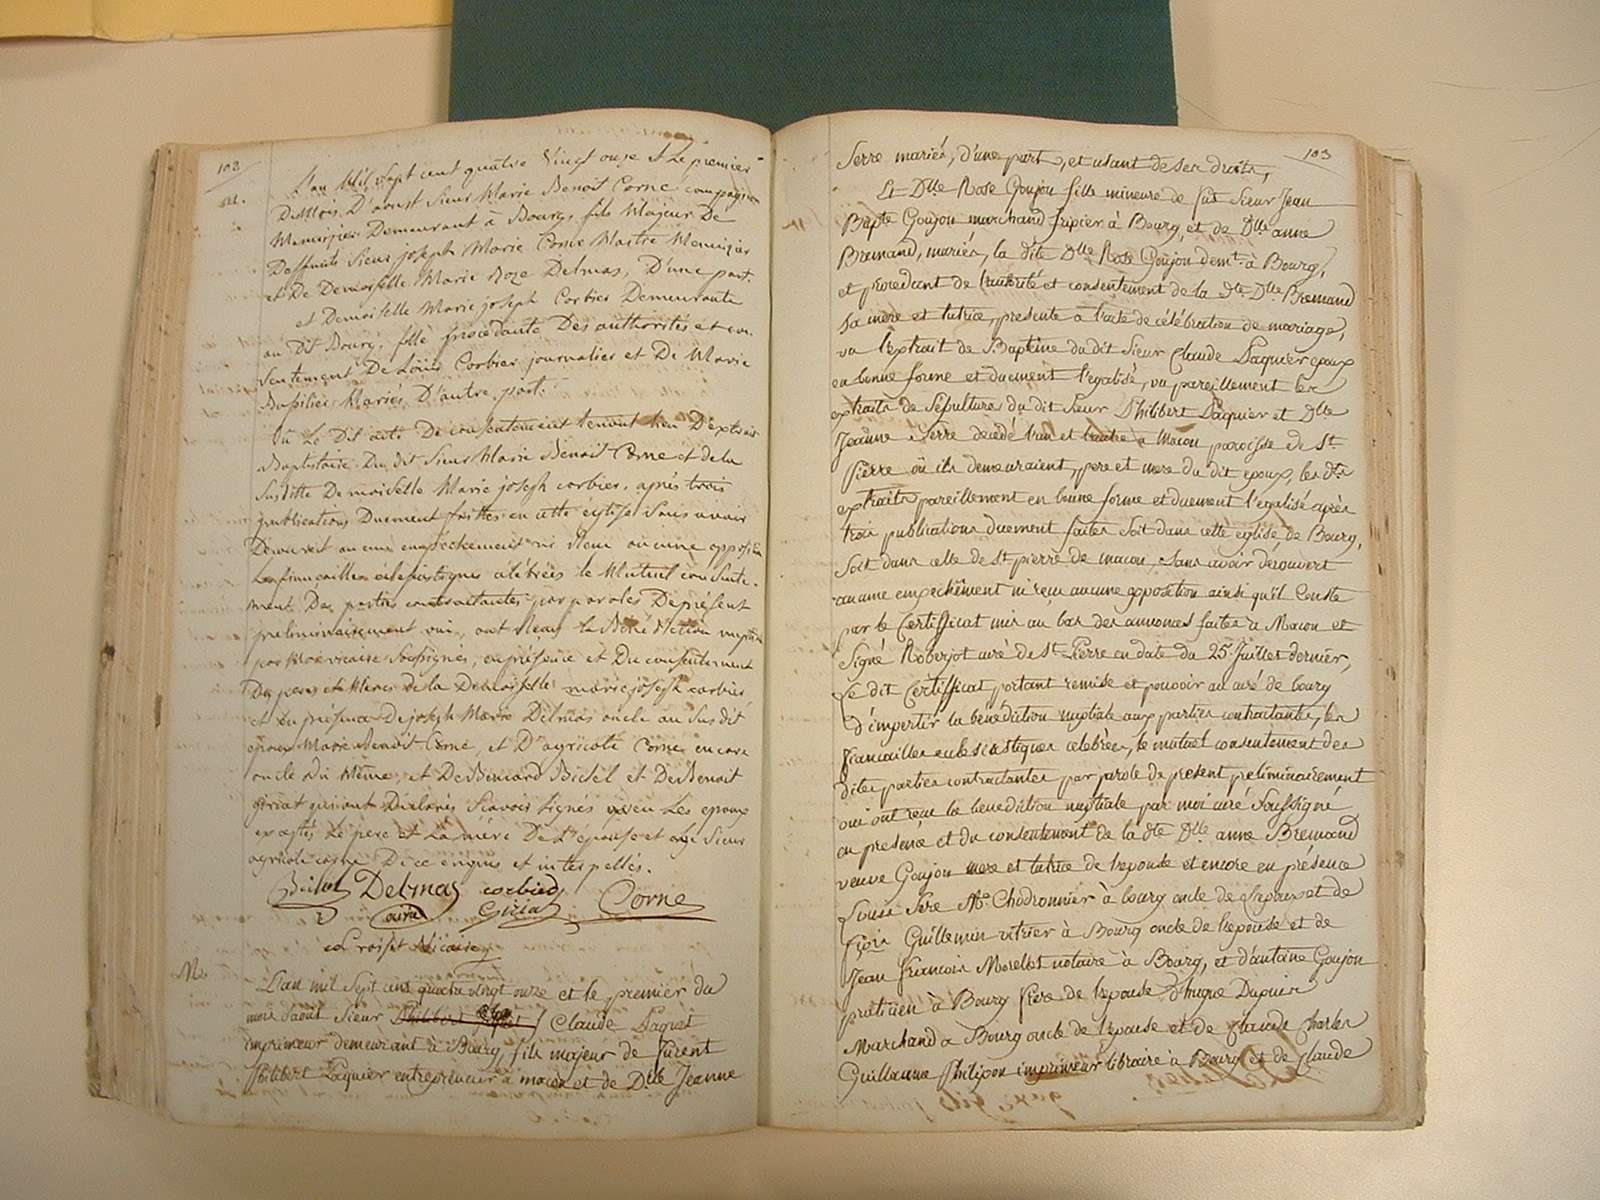 102
M.
L'an Mil Sept cent quatre Vingt onze et Le premier
Du Mois D'aoust Sieur Marie Benoit Corne compagnon
Menuisier Demeurant à Bourg, fils Majeur De
Deffunts Sieur joseph Marie Corne Maitre Menuisier
et De Demoiselle Marie Roze Delmas, D'une part.
et Demoiselle Marie joseph Corbier Demeurante
au Dit Bourg, fille procedante Des authorités et con-
sentement De Loüis Corbier journalier et De Marie
Mariés D'autre part.
Vu Le Dit acte De consentement tenant lieu D'extrait
Baptistaire Du dit Sieur Marie Benoit Corne et de la
Susditte Demoiselle Marie joseph corbier, après trois
publications Duement faittes en cette église Sans avoir
Découvert aucun empechement ni Recu aucune opposition
Les fiancailles eclesiastiques célébrées le Mutuel consente-
ment Des parties contractantes par paroles De présent
preliminairement oui, ont Recu la Béné diction nuptiale
par Moi vicaire Soussignés, en présence et Du consentement
Des peres et Meres de la Demoiselle marie joseph corbier
et en présence De joseph Marie Delmas oncle au Susdit
epoux Marie Benoit Corne, et D'agricole Corne encore
oncle du Même et De Bernard Bichel et De Benoit
Giriat qui ont Déclarés Scavoir Signés avec Les epoux
exceptés Le pere et La mère De L'épouse et le Sieur
agricole corne De ce enquis et interpellés.
Bichel Delmas corbier Corne
Giriat
Croiset vicaire
M.
L'an mil Sept cent quatre vingt onze et le premier du
mois d'aout Sieur Philibert Claude Laquet
imprimeur demeurant à Bourg, fils majeur de
Philibert Laquier entrepreneur à macon et de Dlle Jeanne
103
Serre mariés, d'une part, et usant de ses droits,
Et Dlle Rose Goujon fille mineure de fut Sieur Jean
Bapte Goujon marchand fripier à Bourg, et de Dlle anne
Bremand, mariés, la dite Dlle Rose Goujon demt. à Bourg,
et procedant de l'autorité et consentement de la dte Dlle Bremand
sa mere et tutrice, presente a l'acte de célébration de mariage,
vu l'extrait de Baptême du dit Sieur Claude Laquier epoux
en bonne forme et duement legalisé, vu pareillement les
extraits de Sépulture du dit Sieur Philibert Laquier et Dlle
Jeanne Serre decedé l'un et l'autre a Macon paroisse de St
Pierre où ils demeuraient, pere et mere du dit epoux, les dts
extraits pareillement en bonne forme et duement l'egalisé après
trois publications duement faites Soit dans cette église de Bourg,
Soit dans celle de St pierre de macon, Sans avoir découvert
aucune empechement ni reçu aucune opposition ainsi qu'il Conste
par le Certifficat mis au bas des annonces faites a Macon et
Signé Roberjot curé de St Pierre en date du 25 Juillet dernier,
Le dit Certifficat portant remise et pouvoir au curé de bourg
d'impertir la benediction nuptiale aux parties contractantes, les
fiancailles eclesiastiques celebrées, le mutuel consentement des
dites parties contractantes par parole de present preliminairement
oui ont reçu la benediction nuptiale par moi curé Soussigné
en presence et du consentement de la dte Dlle anne Bremand
veuve Goujon mere et tutrice de l'epouse et encore en présence
Louis Sere Me. Chodronnier à bourg oncle de l'epoux et de
Guillemin vitrier à Bourg oncle de l'epouse et de
Jean francois Morellet notaire à Bourg, et d'antoine Goujon
praticien à Bourg frere de l'epouse d'hugue Dupuier
Marchand a Bourg oncle de l'epouse et de Claude Charles
Guillaume Philipon imprimeur libraire à Bourg et de Claude